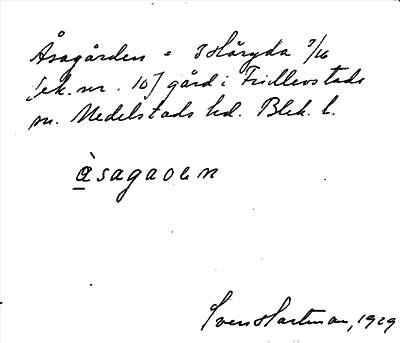 Åsagården = 3 Häryda 7/16
[ek. nr. 10] gård i Fridlevstads
sn. Medelstads hd. Blek. l.
àsagaoen
Sven Hartman, 1929